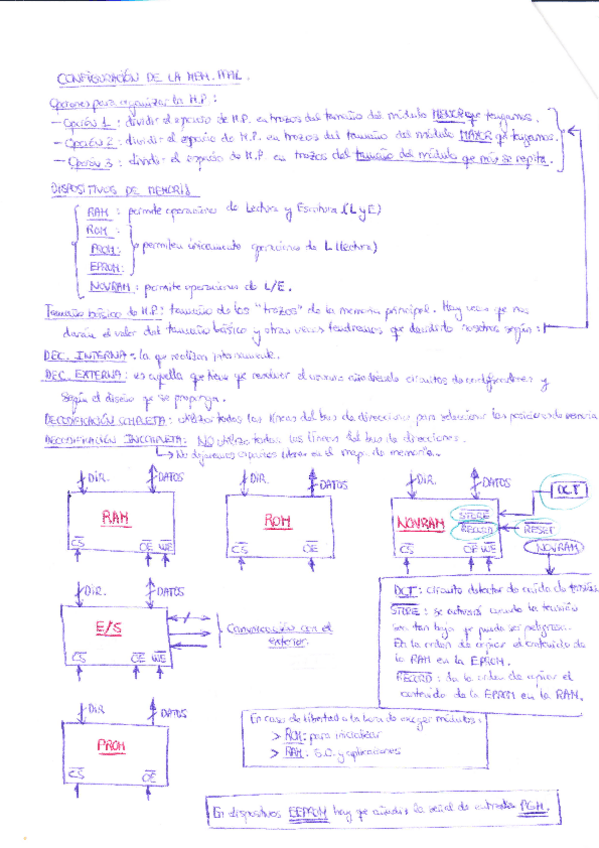 CONFIGURACIÓN DE LA MEM. PPAL.
Opciones para organizar la M.P:
- Opción 1: dividir el espacio de M.P. en trozos del tamaño del módulo MENOR que tengamos.
- Opción 2: dividir el espacio de M.P. en trozos del tamaño del módulo MAYOR que tengamos.
- Opción 3: dividir el espacio de M.P. en trozos del tamaño del módulo que más se repita.
DISPOSITIVOS DE MEMORIA
RAM: permite operaciones de Lectura y Escritura (L y E)
ROM:
PROM: permiten únicamente operaciones de L (lectura)
EPROM:
NOVRAM: permite operaciones de L/E.
Tamaño básico de M.P.: tamaño de los "trozos" de la memoria principal. Hay veces que nos
darán el valor del tamaño básico y otras veces tendremos que decidirlo nosotros según:
DEC. INTERNA: la que realizan internamente.
DEC. EXTERNA: es aquella que tiene que resolver el usuario circuitos decodificadores y
según el diseño que se proponga.
DECODIFICACIÓN COMPLETA: utiliza todas las líneas del bus de direcciones para seleccionar las posiciones de memoria
DECODIFICACIÓN INCOMPLETA: NO utiliza todas las líneas del bus de direcciones.
↳ No dejaremos espacios libres en el mapa de memoria.
DIR. DATOS
RAM
CS OE WE
DIR. DATOS
ROM
CS OE
DIR. DATOS
NOVRAM
STORE
RECORD
CS OE WE
DCT
RESET
NOVRAM
DIR. DATOS
E/S
CS OE WE
Comunicación con el
exterior.
DCT: circuito detector de caída de tensión.
STORE: se activará cuando la tensión
sea tan baja que pueda ser peligroso.
Da la orden de copiar el contenido de
la RAM en la EPROM.
RECORD: da la orden de copiar el
contenido de la EPROM en la RAM.
DIR DATOS
PROM
CS OE
En caso de libertad a la hora de escoger módulos:
> ROM: para inicializar
> RAM: S.O. y aplicaciones
En dispositivos EEPROM hay que añadir la señal de entrada PGM.